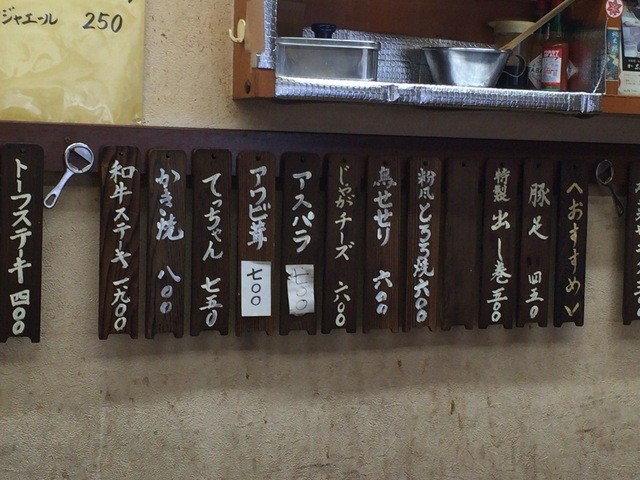 ジャエール 250
へおすすめ〉
豚足 四五〇
特製 出し巻 五〇〇
粉風とろろ焼 六〇〇
鳥せせり 六〇〇
じゃがチーズ 六〇〇
アスパラ 七〇〇
アワビ茸 七〇〇
てっちゃん 七五〇
かき焼 八〇〇
和牛ステーキ 一九〇〇
トーフステーキ 四〇〇